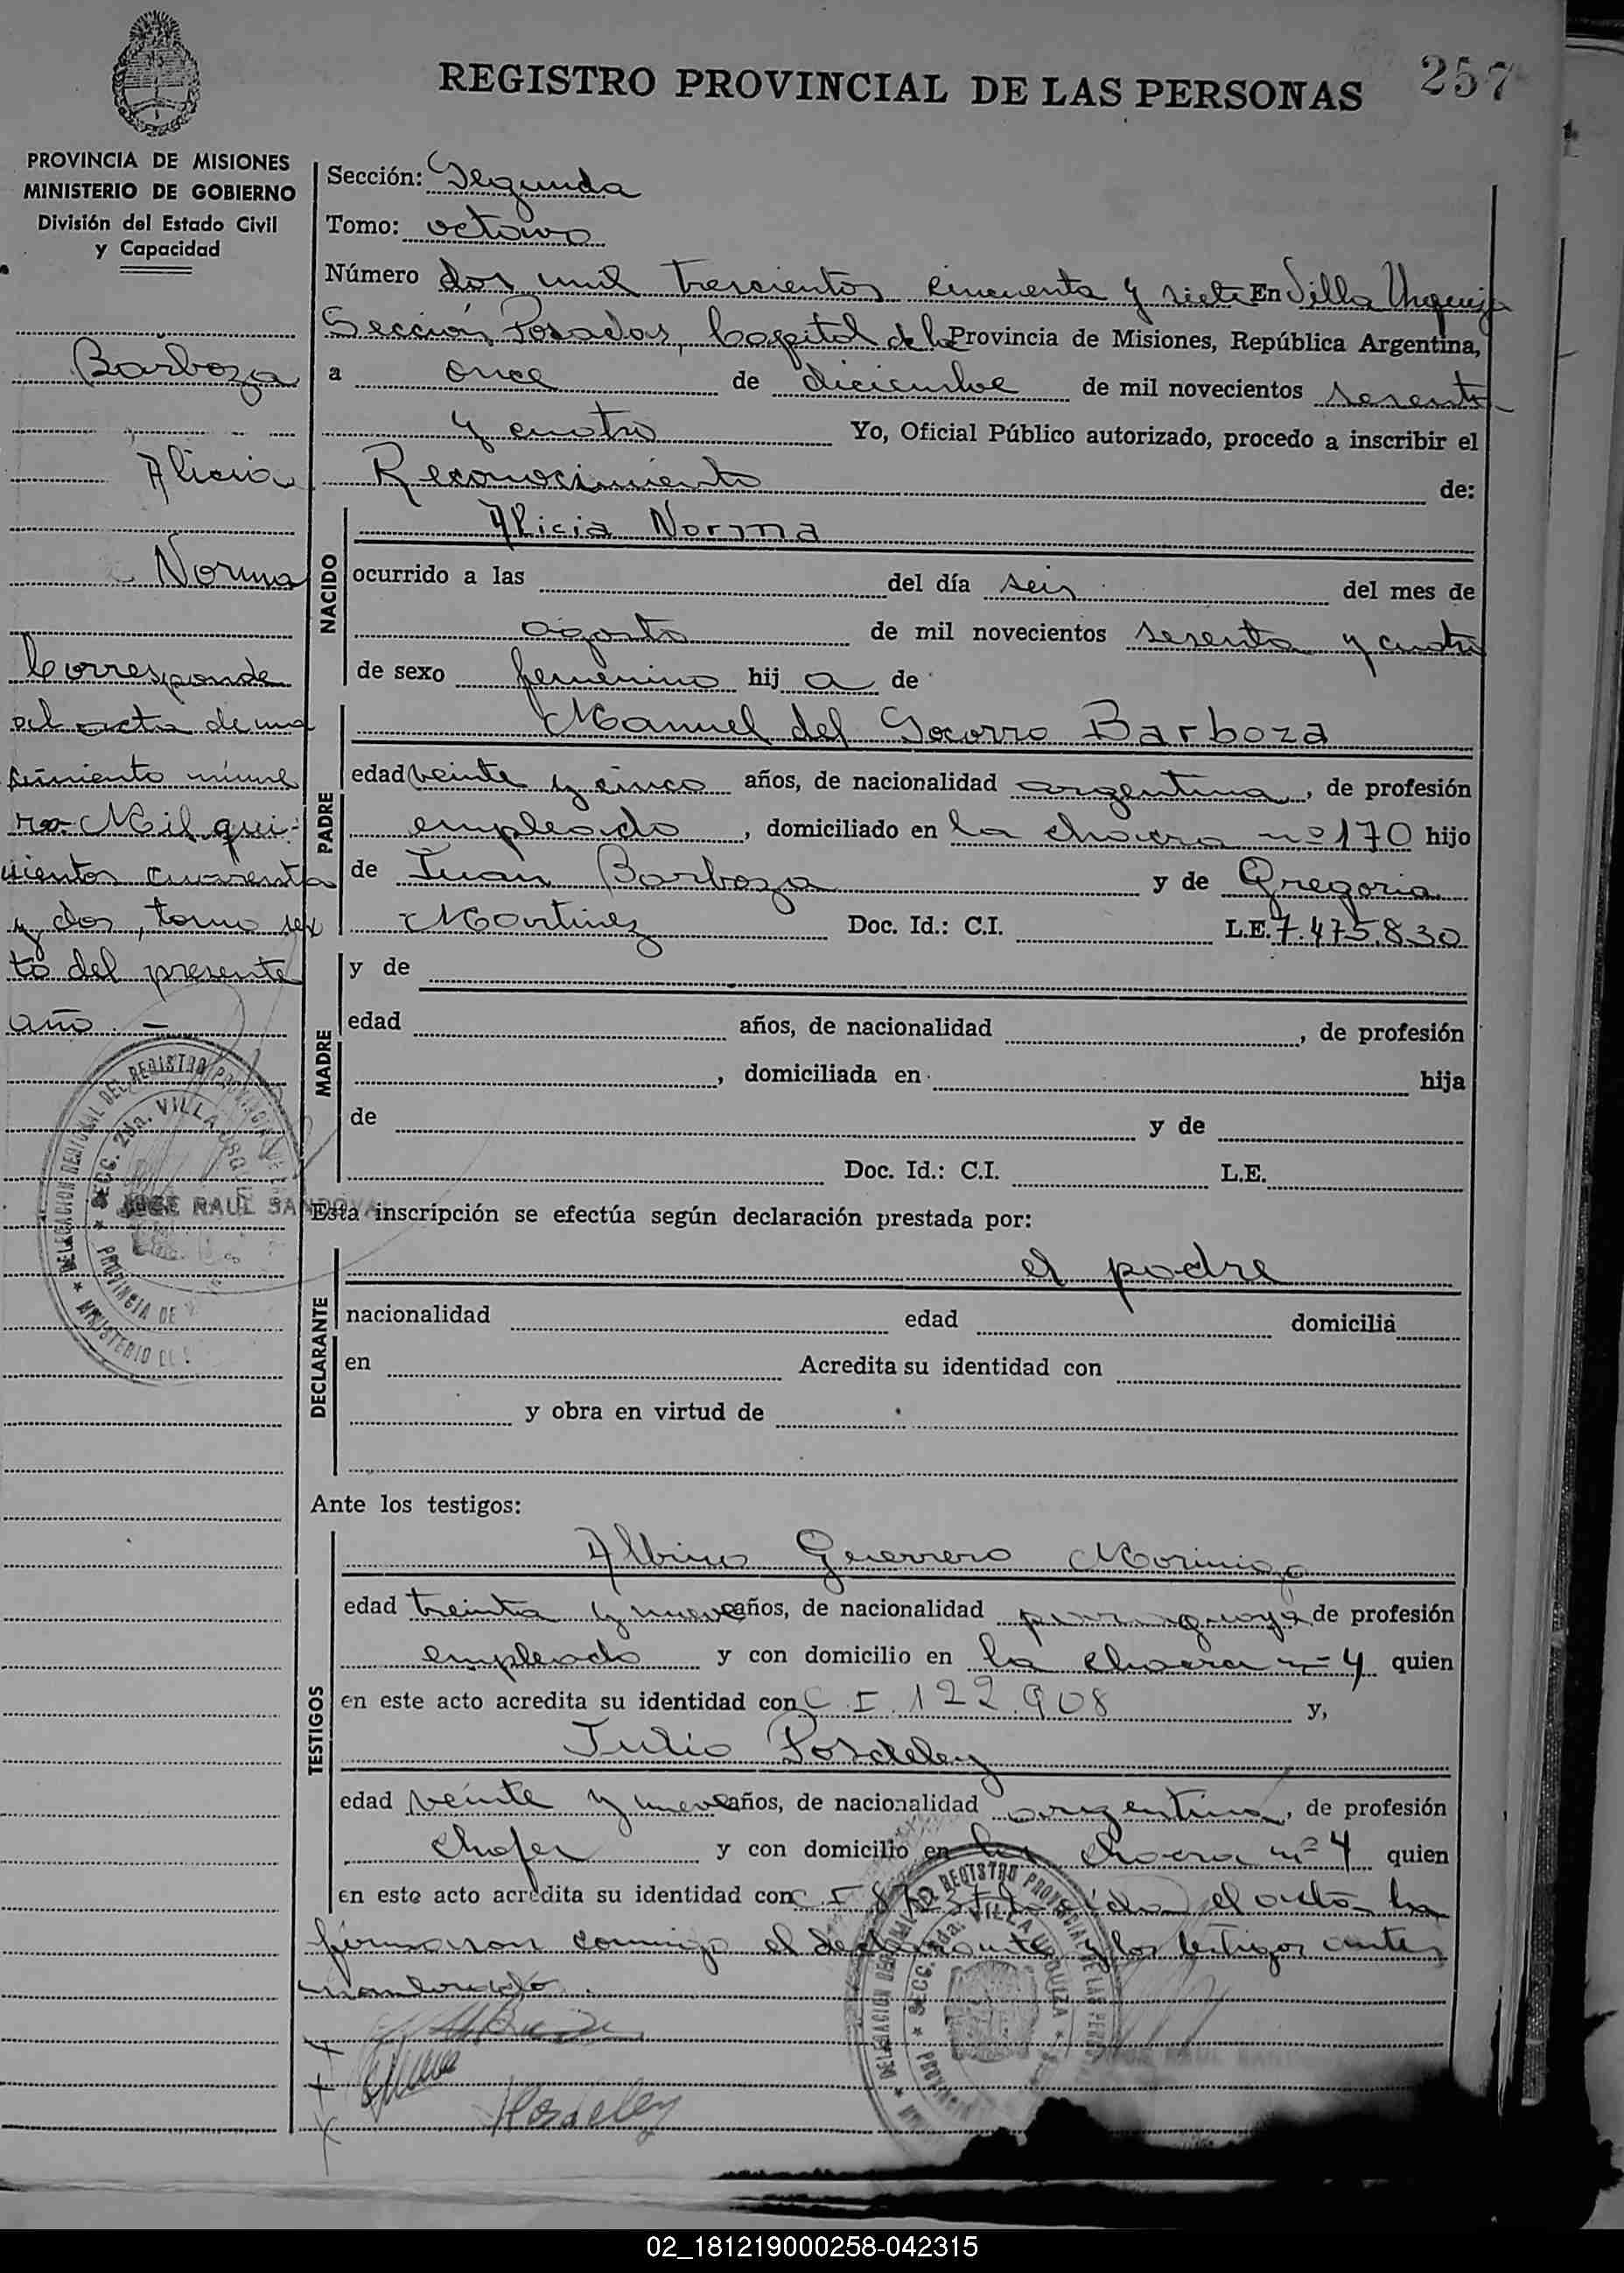 REGISTRO PROVINCIAL DE LAS PERSONAS
257
PROVINCIA DE MISIONES
MINISTERIO DE GOBIERNO
División del Estado Civil
y Capacidad
Barboza
Alicia
Norma
Corresponde
al acta de naci
miento núme
ro Mil qui-
nientos cuarenta
y dos, tomo sex
to del presente
año. —
DELEGACION REGIONAL DEL REGISTRO PROVINCIAL
SECC. 2da. VILLA URQUIZA
PROVINCIA DE
MINISTERIO DE
JOSE RAUL SANDOVAL
Sección: Segunda
Tomo: octavo
Número dos mil trescientos cincuenta y siete En Villa Urquiza
Sección Posadas, Capital de la Provincia de Misiones, República Argentina,
a once de diciembre de mil novecientos sesenta
y cuatro Yo, Oficial Público autorizado, procedo a inscribir el
Reconocimiento de:
NACIDO
Alicia Norma
ocurrido a las del día seis del mes de
agosto de mil novecientos sesenta y cuatro
de sexo femenino hij a de
PADRE
Manuel del Socorro Barboza
edad veinte y cinco años, de nacionalidad argentina, de profesión
empleado, domiciliado en la chacra nº 170 hijo
de Juan Barboza y de Gregoria
Martinez Doc. Id.: C.I. L.E. 7.475.830
MADRE
y de
edad años, de nacionalidad , de profesión
, domiciliada en hija
de y de
Doc. Id.: C.I. L.E.
Esta inscripción se efectúa según declaración prestada por:
DECLARANTE
el padre
nacionalidad edad domicilia
en Acredita su identidad con
y obra en virtud de
Ante los testigos:
TESTIGOS
Albino Guerrero Morinigo
edad treinta y nueve años, de nacionalidad paraguaya de profesión
empleado y con domicilio en la chacra nº 4 quien
en este acto acredita su identidad con C.I. 122.908 y,
Julio Posdeley
edad veinte y nueve años, de nacionalidad argentina, de profesión
chofer y con domicilio en la chacra nº 4 quien
en este acto acredita su identidad con C.I. el acta la
firmaron conmigo el declarante y los testigos antes
nombrado.
Posdeley
DELEGACION REGIONAL DEL REGISTRO PROVINCIAL DE LAS PERSONAS
SECC. 2da. VILLA URQUIZA
PROVINCIA
02_181219000258-042315